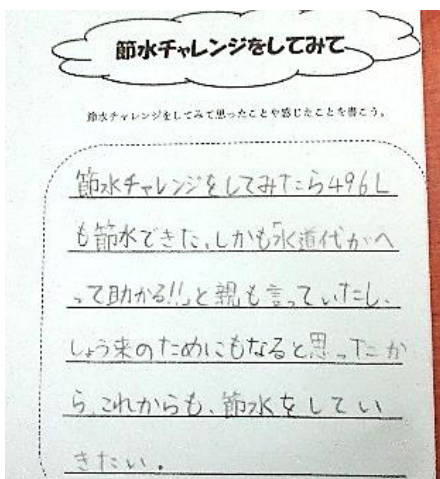 節水チャレンジをしてみて
節水チャレンジをしてみて思ったことや感じたことを書こう。
節水チャレンジをしてみたら496L
も節水できた。しかも「水道代がへ
って助かる!!」と親も言っていたし、
しょう来のためにもなると思ったか
ら、これからも、節水をしてい
きたい。